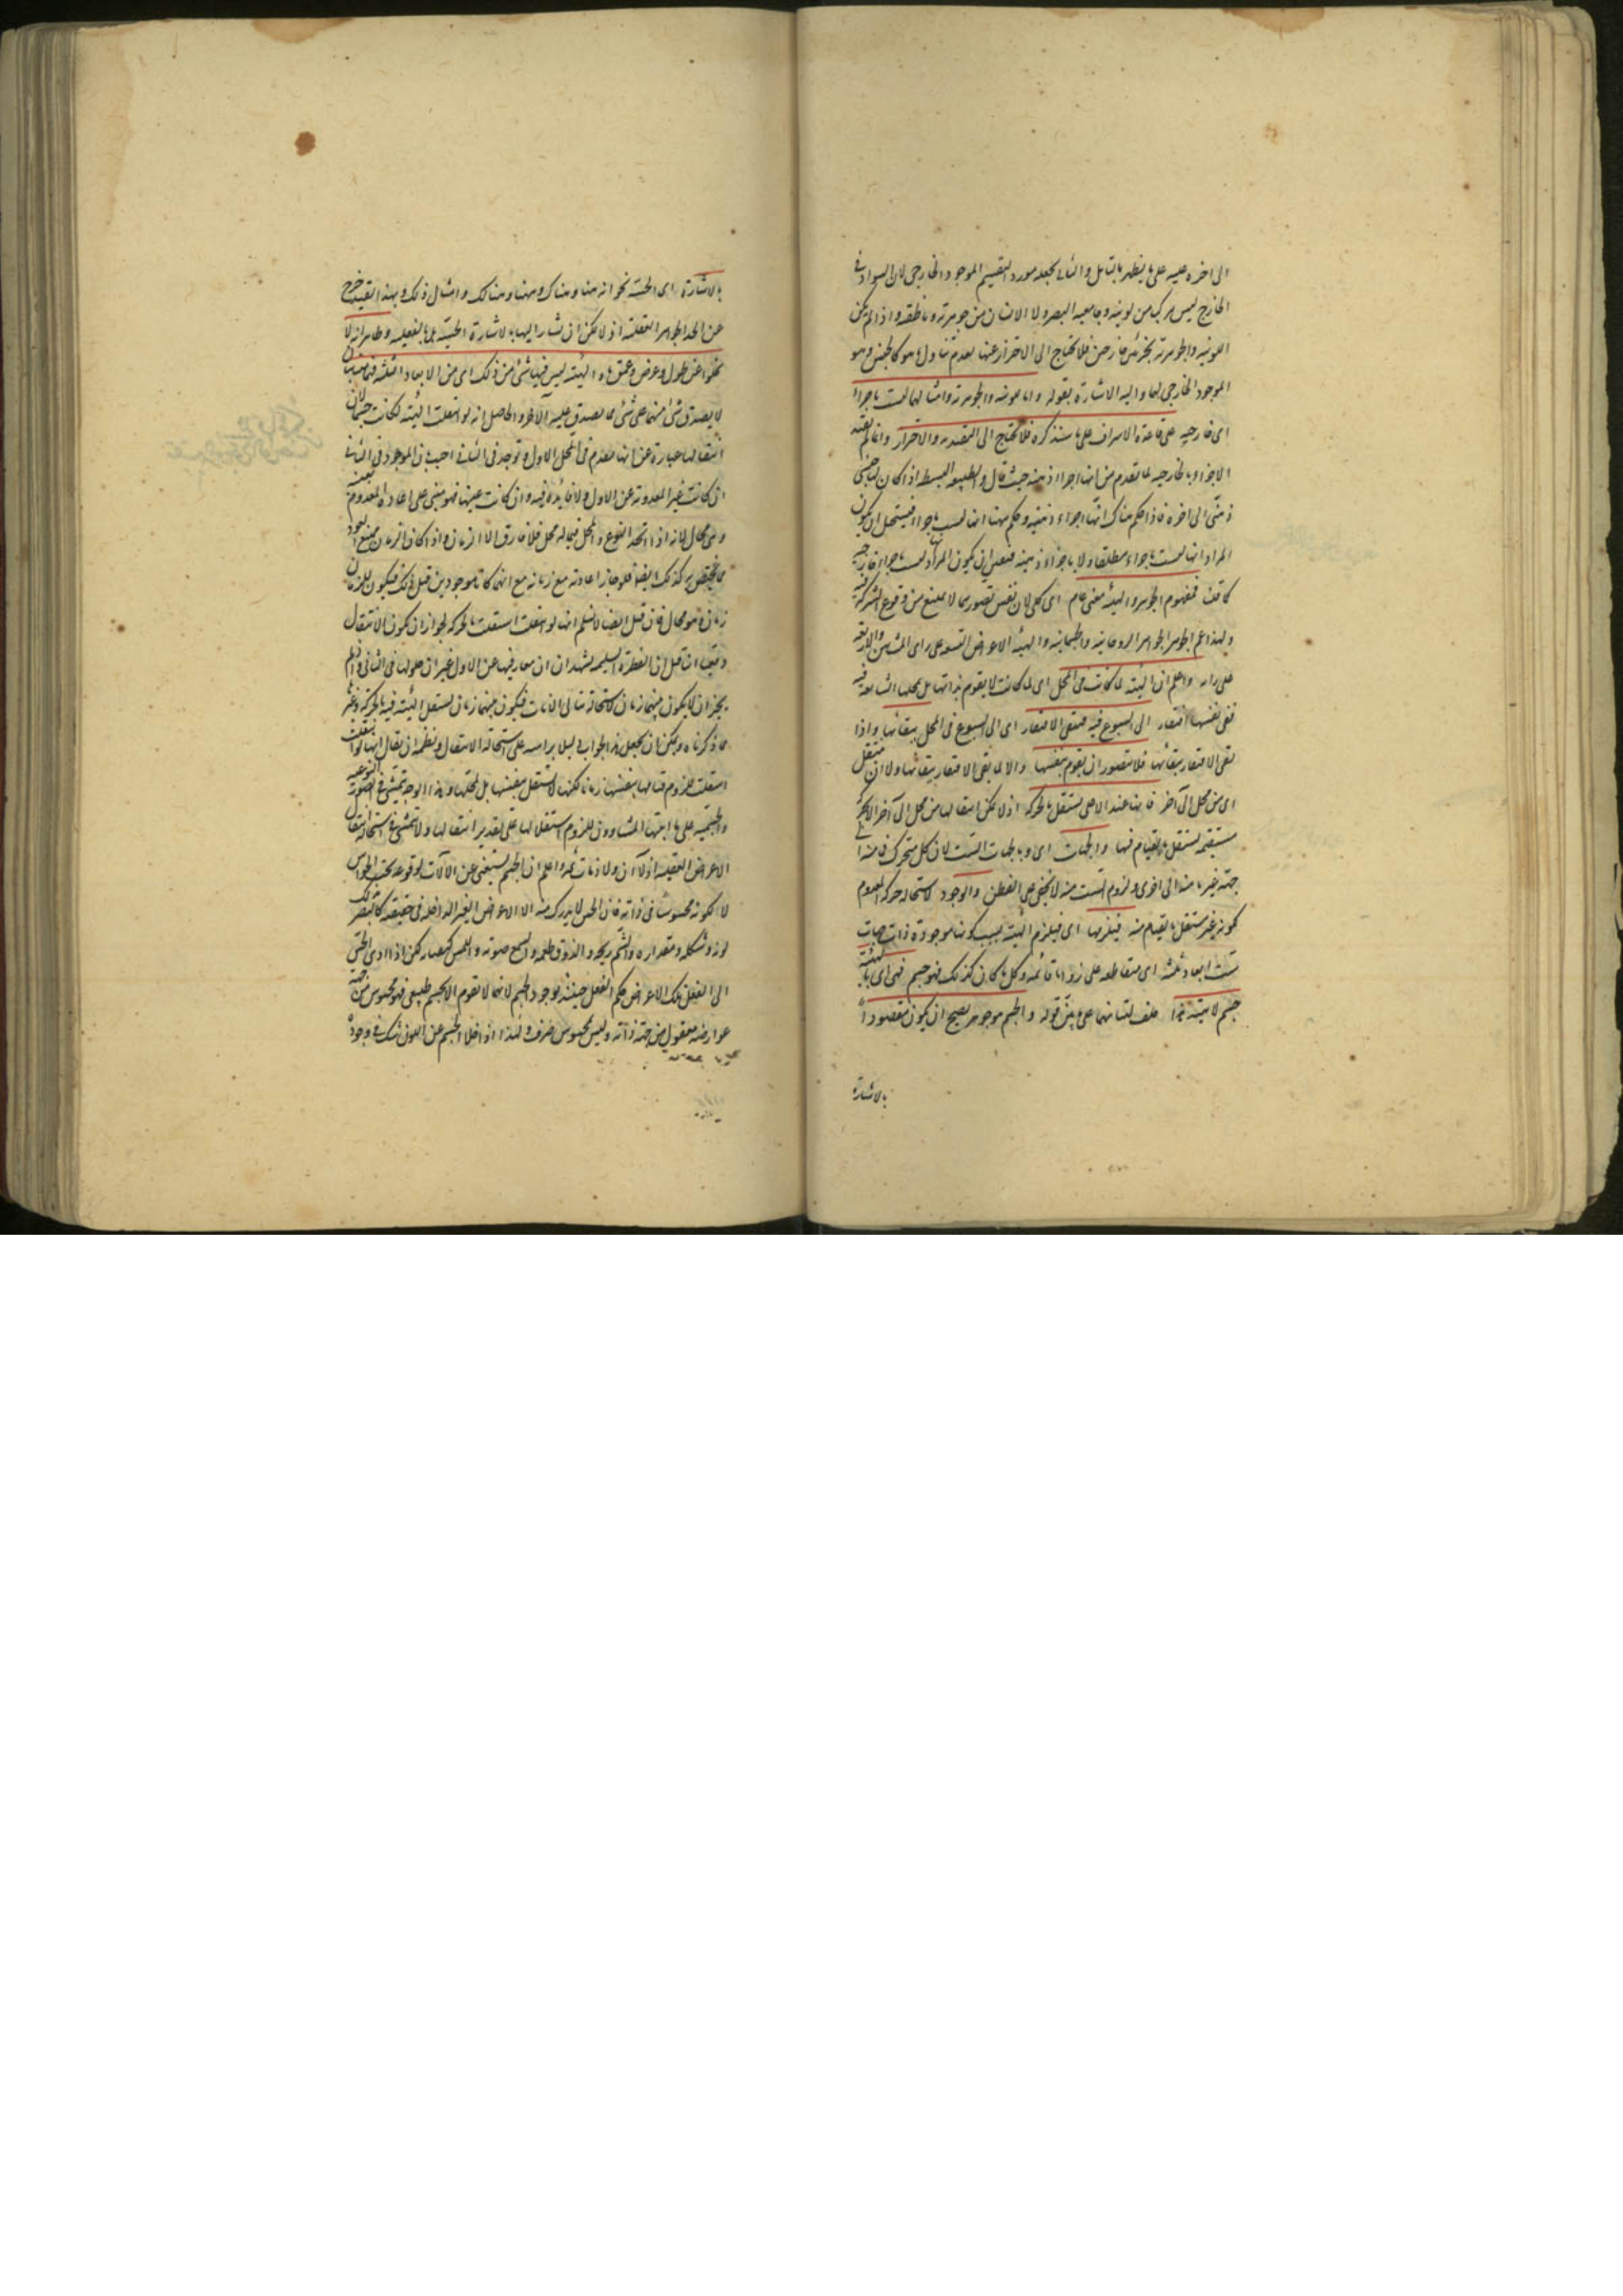 الى اخره عليه على ما يظهر بالتامل والثانى بجعله مورد التقسيم الموجود الخارجى لان السواد فى
الخارج ليس مركب من لونيه وجامعيه البصر ولا الانسان من جوهرية وناطقه واذا لم يكن
اللونيه والجوهرية بجزئين خارجين فلا تحتاج الى الاحتراز عنها بعدم تناول ما هو كالجنس وهو
الموجود الخارجى لهما واليه الاشارة بقوله واما اللونيه والجوهرية وامثالهما ليست باجزاء
اى خارجيه على قاعدة الاشراف على ما سنذكره فلا تحتاج الى التقييد به والاحتراز وانما لم يقيد
الاجزاء بالخارجيه لما تقدم من انها اجزاء ذهنيه حيث قال والطبيعه البسيطه اذا كان لها جنس
ذهنى الى اخره فاذا حكم هناك انها اجزاء ذهنيه وحكم ههنا انها ليست باجزاء فيستحيل ان يكون
المراد انها ليست باجزاء مطلقا ولا باجزاء ذهنيه فتعين ان يكون المراد ليست باجزاء خارجيه
كما قلنا فمفهوم الجوهر والهيئه معنى عام اى كلى لان نفس تصورهما لا يمنع من وقوع الشركة فيه
ولهذا عم الجوهر الجواهر الروحانيه والجسمانيه والهيئه الاعراض التسعه على راى المشائين والاربعه
على رايه واعلم ان الهيئه لما كانت فى المحل اى لما كانت لا يقوم بذاتها بل بمحلها الشايعه فيه
ففى نفسها افتقار الى الشيوع فيه فيبقى الافتقار اى الى الشيوع فى المحل ببقائها واذا
بقى الافتقار ببقائها فلا يتصور ان يقوم بنفسها والا لما بقى الافتقار ببقائها ولا ان ينتقل
اى من محل الى آخر فانها عند الانتقال تستقل بالحركة اذ لا يمكن انتقالها من محل الى آخر الا بحركة
مستقيمه تستقل بالقيام فيها والجهات اى وبالجهات الست لان كل متحرك فانه الى
جهة غير ما منه الى اخرى ولزوم الست منه لا يخفى على الفطن والوجود لاستحاله حركة المعدوم
كونه غير مستقل بالقيام منه فيلزمها اى فيلزم الهيئه بسبب كونها موجودة ذات جهات
ست ابعاد ثلثه اى متقاطعه على زوايا قائمه وكل ما كان كذلك فهو جسم فهى اى الهيئه
جسم لا هيئه هذا خلف لتباينهما على ما بين قوله والجسم هو جوهر يصح ان يكون مقصودا
بالاشارة
بالاشارة اى الحسيه نحو انه هنا وهناك وههنا وهنالك وامثال ذلك وبهذا القيد خرج
عن الحد الجواهر العقلية اذ لا يمكن ان يشار اليها بالاشارة الحسيه بل بالعقليه وظاهر انه لا
يخلوا عن طول وعرض وعمق ما والهيئه ليس فيها شئ من ذلك اى من الابعاد الثلثه فتباينتا
لا يصدق شئ منهما على شئ مما يصدق عليه الآخر والحاصل انه لو انتقلت الهيئه لكانت جسما لان
انتقالها عبارة عن انها تعدم فى المحل الاول وتوجد فى الثانى اجيب ان الموجود فى الثانى
ان كانت غير المعدومة عن الاول ولا فائده فيه وان كانت عينها فهو مبنى على اعادة المعدوم بعينه
وهى محال لانه اذا اتحد النوع والمحل فما له محل فلا فارق الا الزمان واذا كان الزمان ممتنع العود
فما يختص به كذلك ايضا فلو جاز اعادته مع زمانه مع انهما كانا موجودين قبل ذلك فيكون للزمان
زمان وهو محال فان قيل ايضا لا نسلم انها لو انتقلت استقلت بالحركة لجواز ان يكون الانتقال
دفعيا قيل ان الفطرة السليمه تشهد ان ان مفارقتها عن الاول غير ان حلولها فى الثانى واذا لم
يجز ان لا يكون بينهما زمان لاستحالة تتالى الانات فيكون بينهما زمان تستقل الهيئه فيه بالحركة وغير
ما ذكرناه ويمكن ان يجعل هذا الجواب دليلا براسه على استحالة الانتقال ونظمه ان يقال انها لو انتقلت
استقلت للزوم قيامها بنفسها زمانا لكنها لا تستقل بنفسها بل بمحلها وهذا الوجه يتمشى فى الصورة النوعيه
والجسميه على ما اثبتها المشاؤون للزوم استقلالها على تقدير انتقالها ولا يتمشى فى استحالة انتقال
الاعراض العقليه اذ لا آن ولا زمان ثمه واعلم ان الجسم يستغنى عن الاثبات لوقوعه تحت الحواس
لا لكونه محسوسا فى ذاته فان الحس لا يدرك منه الا الاعراض الغير الداخله فى حقيقته كالبصر يدرك
لونه وشكله ومقداره والشم ريحه والذوق طعمه والسمع صوته واللمس كيفياته لكن اذا ادى الحس
الى العقل تلك الاعراض حكم العقل حينئذ بوجود الجسم لانها لا تقوم الا بجسم طبيعى فهو محسوس من جهة
عوارضه معقول من جهة ذاته وليس بمحسوس صرف ولهذا اذا خلا الجسم عن اللون شك فى وجوده